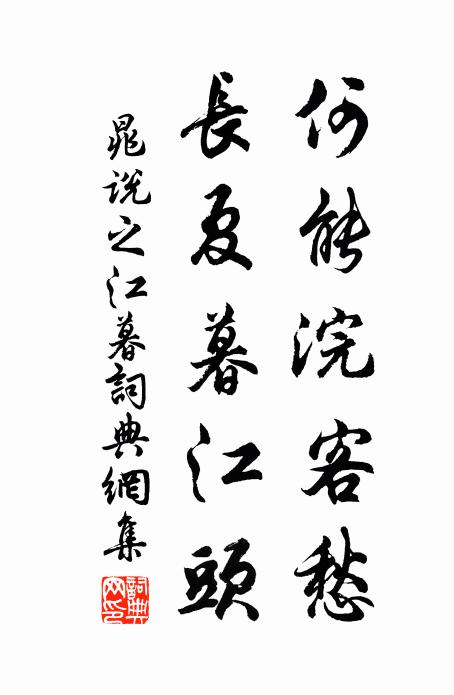 何能浣客愁
長夏暮江頭
晁說之江暮詞典網集
詞典网印